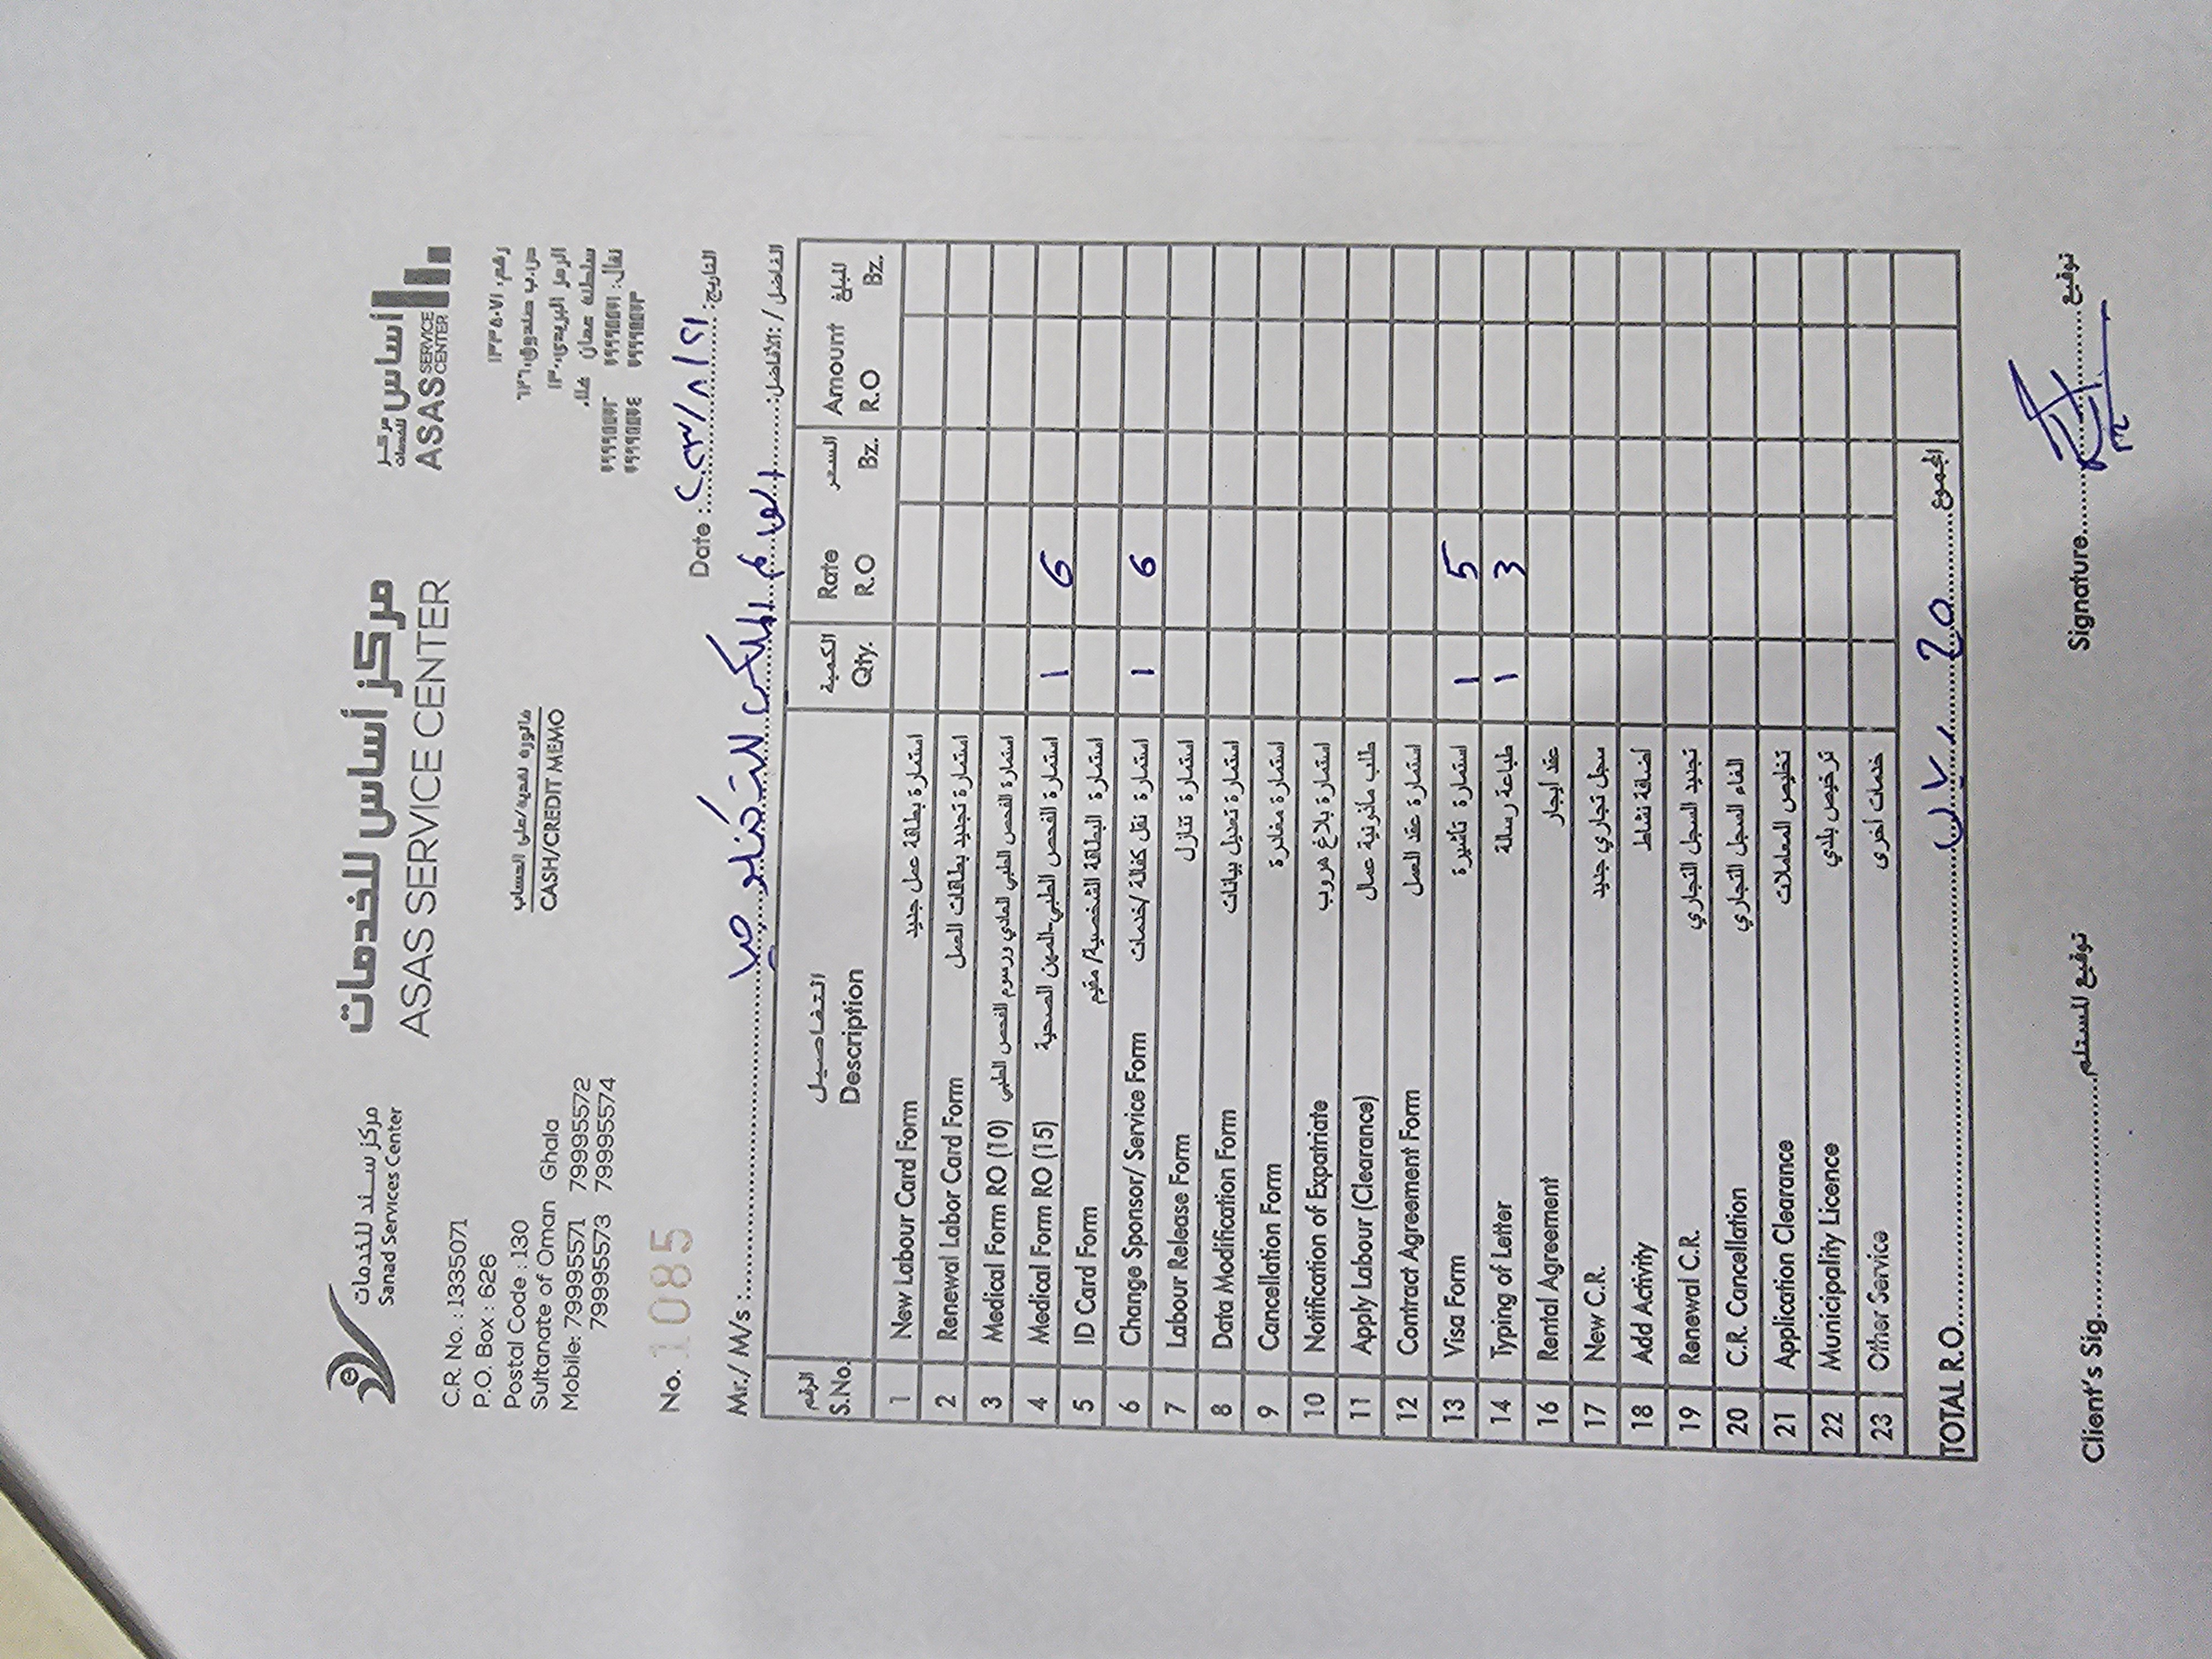 مركز سند للخدمات
Sanad Services Center
مركز أساس للخدمات
ASAS SERVICE CENTER
أساس مركز للخدمات
ASAS SERVICE CENTER
C.R. No. : 1335071
P.O. Box : 626
Postal Code : 130
Sultanate of Oman Ghala
Mobile: 79995571 79995572
79995573 79995574
رقم: ١٣٣٥٠٧١
ص.ب صندوق: ٦٢٦
الرمز البريدي: ١٣٠
سلطنة عمان غلا،
نقال: ٧٩٩٩٥٥٧١ ٧٩٩٩٥٥٧٢
٧٩٩٩٥٥٧٣ ٧٩٩٩٥٥٧٤
فاتورة نقدية/على الحساب
CASH/CREDIT MEMO
No. 1085
Date : التاريخ:
Mr./ M/s : الفاضل / الأفاضل:
الرقم التفاصيل الكمية السعر المبلغ
S.No. Description Qty. Rate Amount
R.O Bz. R.O Bz.
1 New Labour Card Form استمارة بطاقة عمل جديد
2 Renewal Labor Card Form استمارة تجديد بطاقات العمل
3 Medical Form RO (10) استمارة الفحص الطبي العادي ورسوم الفحص الطبي
4 Medical Form RO (15) استمارة الفحص الطبي-المهن الصحية 1 6
5 ID Card Form استمارة البطاقة الشخصية/ مقيم
6 Change Sponsor/ Service Form استمارة نقل كفالة /خدمات 1 6
7 Labour Release Form استمارة تنازل
8 Data Modification Form استمارة تعديل بيانات
9 Cancellation Form استمارة مغادرة
10 Notification of Expatriate استمارة بلاغ هروب
11 Apply Labour (Clearance) طلب مأذونية عمال
12 Contract Agreement Form استمارة عقد العمل
13 Visa Form استمارة تأشيرة 1 5
14 Typing of Letter طباعة رسالة 1 3
16 Rental Agreement عقد أيجار
17 New C.R. سجل تجاري جديد
18 Add Activity أضافة نشاط
19 Renewal C.R. تجديد السجل التجاري
20 C.R. Cancellation الغاء السجل التجاري
21 Application Clearance تخليص المعاملات
22 Municipality Licence ترخيص بلدي
23 Other Service خدمات أخرى
TOTAL R.O. 20 المجموع
Client's Sig. توقيع المستلم Signature توقيع